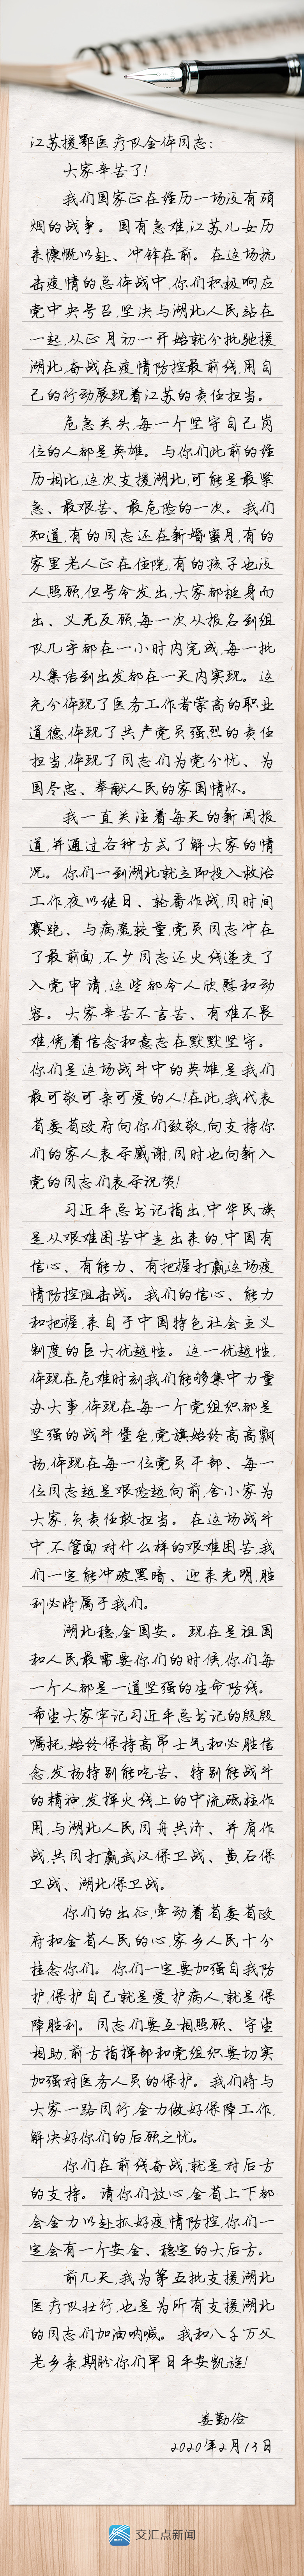 江苏援鄂医疗队全体同志：
大家辛苦了！
我们国家正在经历一场没有硝
烟的战争。国有急难，江苏儿女历
来慷慨以赴、冲锋在前。在这场抗
击疫情的总体战中，你们积极响应
党中央号召，坚决与湖北人民站在
一起，从正月初一开始就分批驰援
湖北，奋战在疫情防控最前线，用自
己的行动展现着江苏的责任担当。
危急关头，每一个坚守自己岗
位的人都是英雄。与你们此前的经
历相比，这次支援湖北，可能是最紧
急、最艰苦、最危险的一次。我们
知道，有的同志还在新婚蜜月，有的
家里老人正在住院，有的孩子也没
人照顾，但号令发出，大家都挺身而
出、义无反顾，每一次从报名到组
队几乎都在一小时内完成，每一批
从集结到出发都在一天内实现。这
充分体现了医务工作者崇高的职业
道德，体现了共产党员强烈的责任
担当，体现了同志们为党分忧、为
国尽忠、奉献人民的家国情怀。
我一直关注着每天的新闻报
道，并通过各种方式了解大家的情
况。你们一到湖北就立即投入救治
工作，夜以继日、轮番作战，同时间
赛跑、与病魔较量，党员同志冲在
了最前面，不少同志还火线递交了
入党申请，这些都令人欣慰和动
容。大家辛苦不言苦、有难不畏
难，凭着信念和意志在默默坚守。
你们是这场战斗中的英雄，是我们
最可敬可亲可爱的人！在此，我代表
省委省政府向你们致敬，向支持你
们的家人表示感谢，同时也向新入
党的同志们表示祝贺！
习近平总书记指出，中华民族
是从艰难困苦中走出来的，中国有
信心、有能力、有把握打赢这场疫
情防控阻击战。我们的信心、能力
和把握，来自于中国特色社会主义
制度的巨大优越性。这一优越性，
体现在危难时刻我们能够集中力量
办大事，体现在每一个党组织都是
坚强的战斗堡垒，党旗始终高高飘
扬，体现在每一位党员干部、每一
位同志越是艰险越向前，舍小家为
大家，负责任敢担当。在这场战斗
中，不管面对什么样的艰难困苦，我
们一定能冲破黑暗、迎来光明，胜
利必将属于我们。
湖北稳，全国安。现在是祖国
和人民最需要你们的时候，你们每
一个人都是一道坚强的生命防线。
希望大家牢记习近平总书记的殷殷
嘱托，始终保持高昂士气和必胜信
念，发扬特别能吃苦、特别能战斗
的精神，发挥火线上的中流砥柱作
用，与湖北人民同舟共济、并肩作
战，共同打赢武汉保卫战、黄石保
卫战、湖北保卫战。
你们的出征，牵动着省委省政
府和全省人民的心，家乡人民十分
挂念你们。你们一定要加强自我防
护，保护自己就是爱护病人，就是保
障胜利。同志们要互相照顾、守望
相助，前方指挥部和党组织要切实
加强对医务人员的保护。我们将与
大家一路同行，全力做好保障工作，
解决好你们的后顾之忧。
你们在前线奋战，就是对后方
的支持。请你们放心，全省上下都
会全力以赴抓好疫情防控，你们一
定会有一个安全、稳定的大后方。
前几天，我为第五批支援湖北
医疗队壮行，也是为所有支援湖北
的同志们加油呐喊。我和八千万父
老乡亲，期盼你们早日平安凯旋！
娄勤俭
2020年2月13日
交汇点新闻